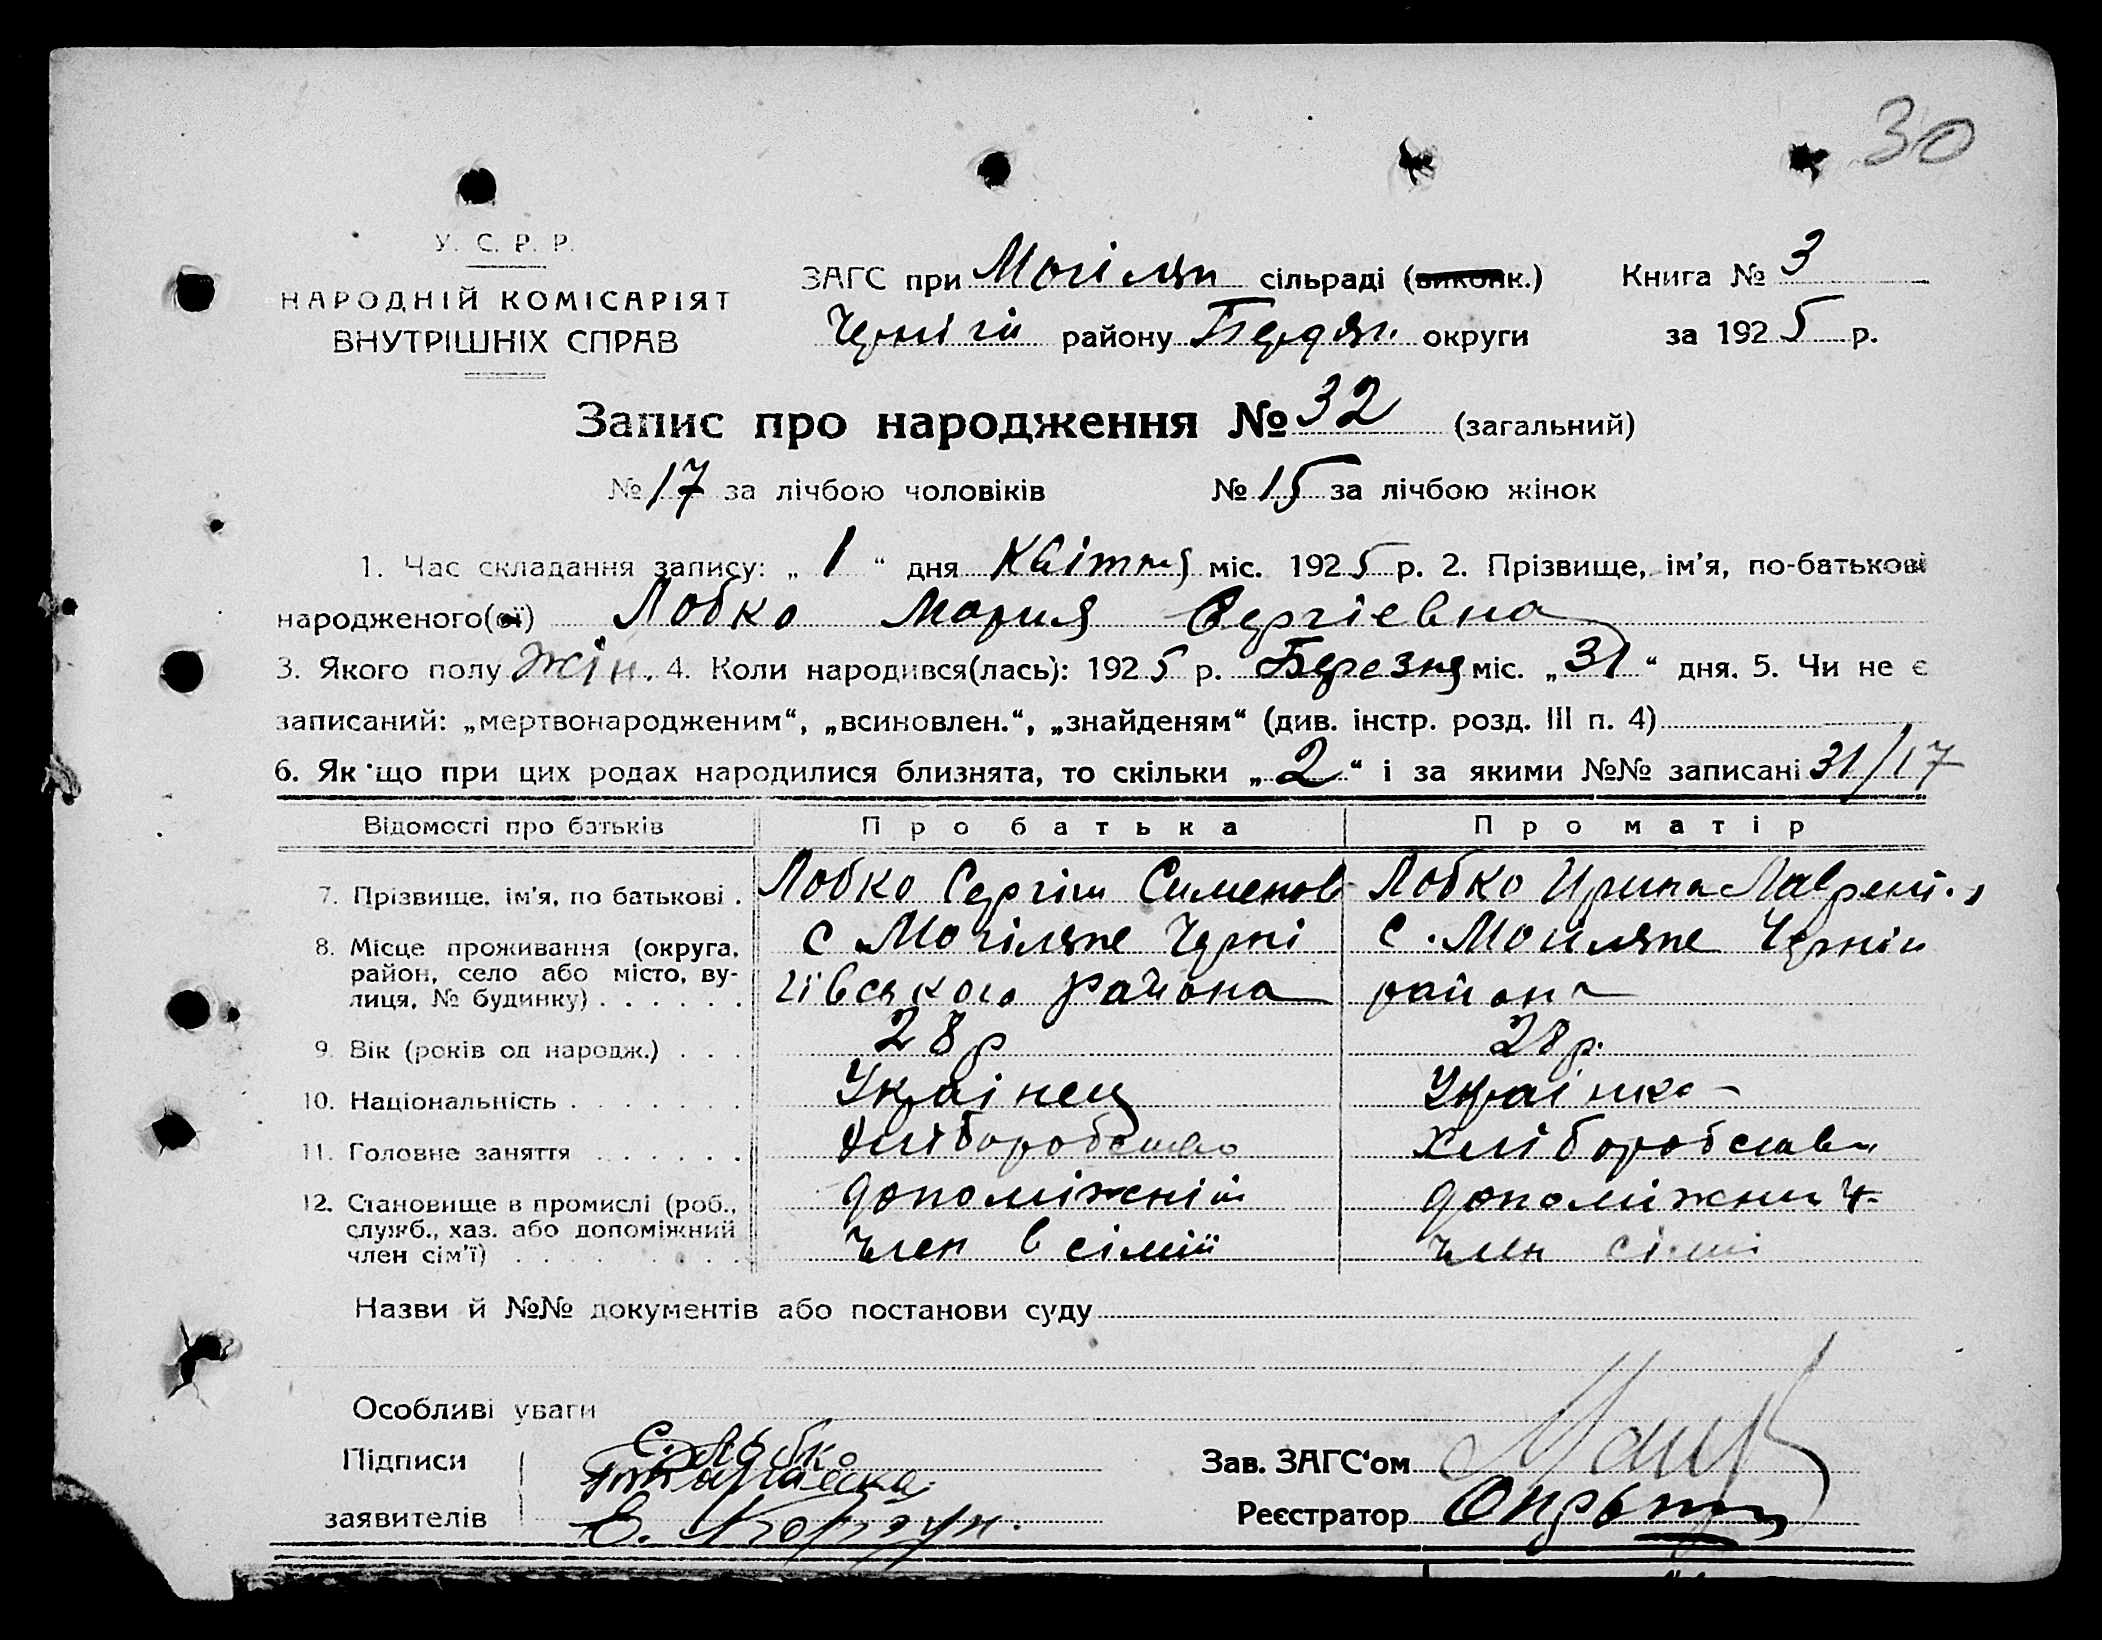 30
У. С. Р. Р.
НАРОДНІЙ КОМІСАРІЯТ
ВНУТРІШНІХ СПРАВ
ЗАГС при Могілян сільраді (виконк.) Книга № 3
Чернігів району Бердян. округи за 1925 р.
Запис про народження № 32 (загальний)
№ 17 за лічбою чоловіків № 15 за лічбою жінок
1. Час складання запису: „ 1 “ дня Квітня міс. 1925 р. 2. Прізвище, ім'я, по-батькові
народженого(ої) Лобко Мария Сергіевна
3. Якого полу жін. 4. Коли народився(лась): 1925 р. Березня міс. „ 31 “ дня. 5. Чи не є
записаний: „мертвонародженим“, „всиновлен.“, „знайденям“ (див. інстр. розд. III п. 4)
6. Як що при цих родах народилися близнята, то скільки „ 2 “ і за якими №№ записані 31/17
Відомості про батьків Про батька Про матір
7. Прізвище, ім'я, по батькові . Лобко Сергіи Сименов Лобко Ирина Лаврент.
8. Місце проживання (округа, район, село або місто, вулиця, № будинку) . . . . . . с Могіляне Черні
гівського района
с. Могиляне Черніг
района
9. Вік (років од народж.) . . . 28 р 28 р.
10. Національність . . . . . . . Украінец Украінка
11. Головне заняття . . . . . . Хліборобство Хліборобства
12. Становище в промислі (роб., служб., хаз. або допоміжний член сім'ї) . . . . . . . . допоміжній
член в сімїі
допоміжний
член сімі
Назви й №№ документів або постанови суду
Особливі уваги
Підписи С. Лобко
заявителів
Зав. ЗАГС'ом
Реєстратор